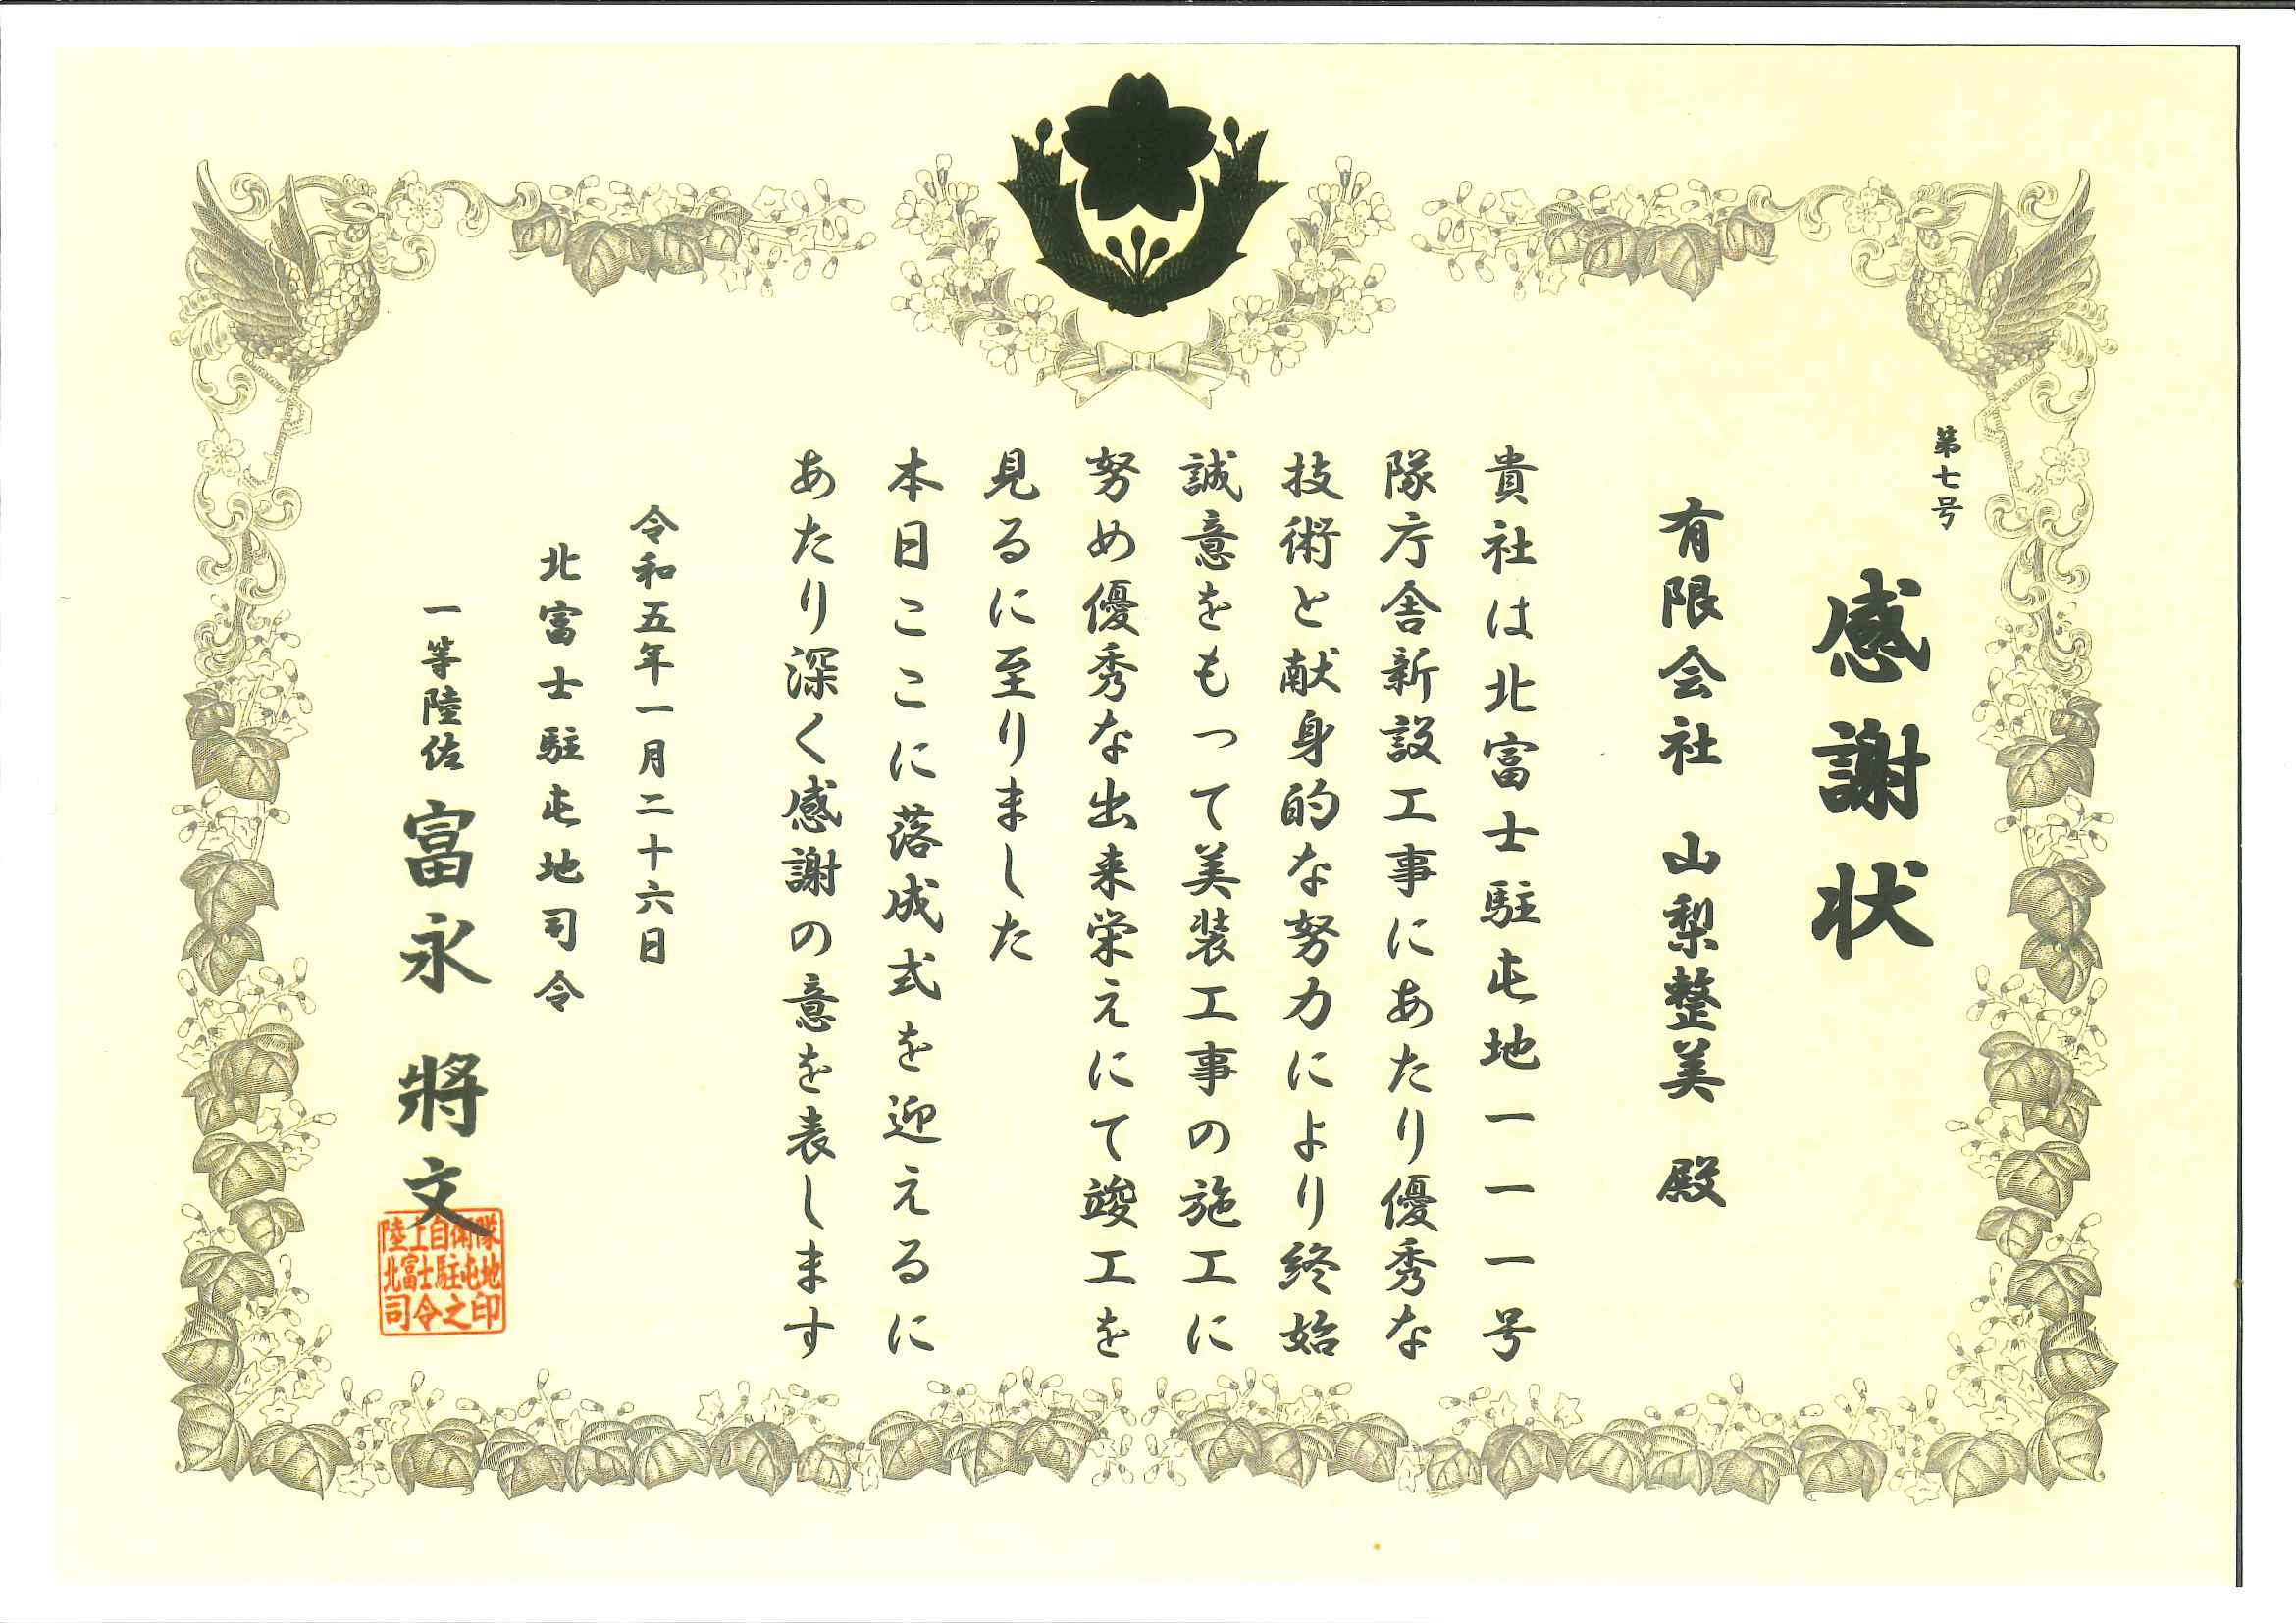 第七号
感謝状
有限会社 山梨整美 殿
貴社は北富士駐屯地一一一号
隊庁舎新設工事にあたり優秀な
技術と献身的な努力により終始
誠意をもって美装工事の施工に
努め優秀な出来栄えにて竣工を
見るに至りました
本日ここに落成式を迎えるに
あたり深く感謝の意を表します
令和五年一月二十六日
北富士駐屯地司令
一等陸佐 富永 將文
陸上自衛隊
北富士駐屯地
司令之印